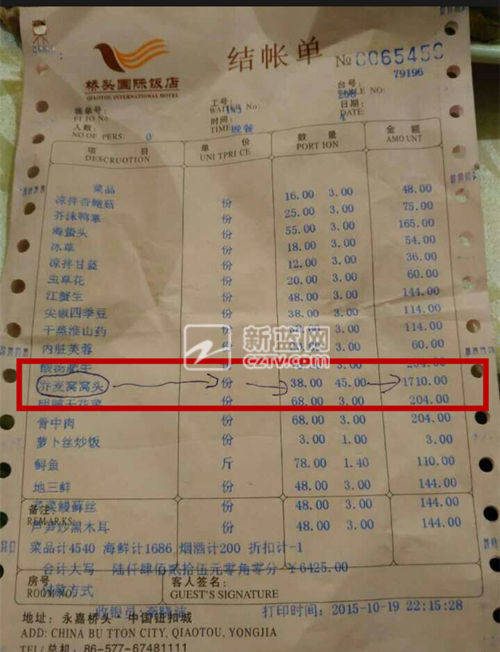 结帐单
№ 0065450
79196
桥头国际饭店
QIAOTOU INTERNATIONAL HOTEL
账单号: 工号: 台号:
TABLE NO:
人数 时间: 日期:
NO OF PERS: 0 TIME: 晚餐 DATE:
项目 单价 数量 金额
DESCRUOTION UNI TPRI CE PORT ION AMO UNT
菜品
凉拌杏鲍菇 份 16.00 3.00 48.00
芥沫鸭掌 份 25.00 3.00 75.00
海蜇头 份 55.00 3.00 165.00
冰草 份 18.00 3.00 54.00
凉拌甘蓝 份 12.00 3.00 36.00
虫草花 份 20.00 3.00 60.00
江蟹生 份 48.00 3.00 144.00
尖椒四季豆 份 38.00 3.00 114.00
干蒸淮山药 份 38.00 3.00 114.00
内脏芙蓉 份 3.00 60.00
新蓝网
cztv.com
荞麦窝窝头 份 38.00 45.00 1710.00
干花菜 份 68.00 3.00 204.00
骨中肉 份 68.00 3.00 204.00
萝卜丝炒饭 份 3.00 1.00 3.00
鲜鱼 斤 78.00 1.40 110.00
地三鲜 份 48.00 3.00 144.00
鳗鲞丝 份 48.00 3.00 144.00
备注:
REMARKS
炒黑木耳 份 48.00 3.00 144.00
菜品计4540 海鲜计1686 烟酒计200 折扣计-1
合计大写 陆仟肆佰贰拾伍元零角零分 ¥6425.00
房号 客人签名:
ROOM NO. GUEST'S SIGNATURE
付款方式
收银员: 打印时间:2015-10-19 22:15:28
地址: 永嘉桥头·中国钮扣城
ADD: CHINA BU TTON CITY, QIAOTOU, YONGJIA
TEL/总机: 86-577-67481111